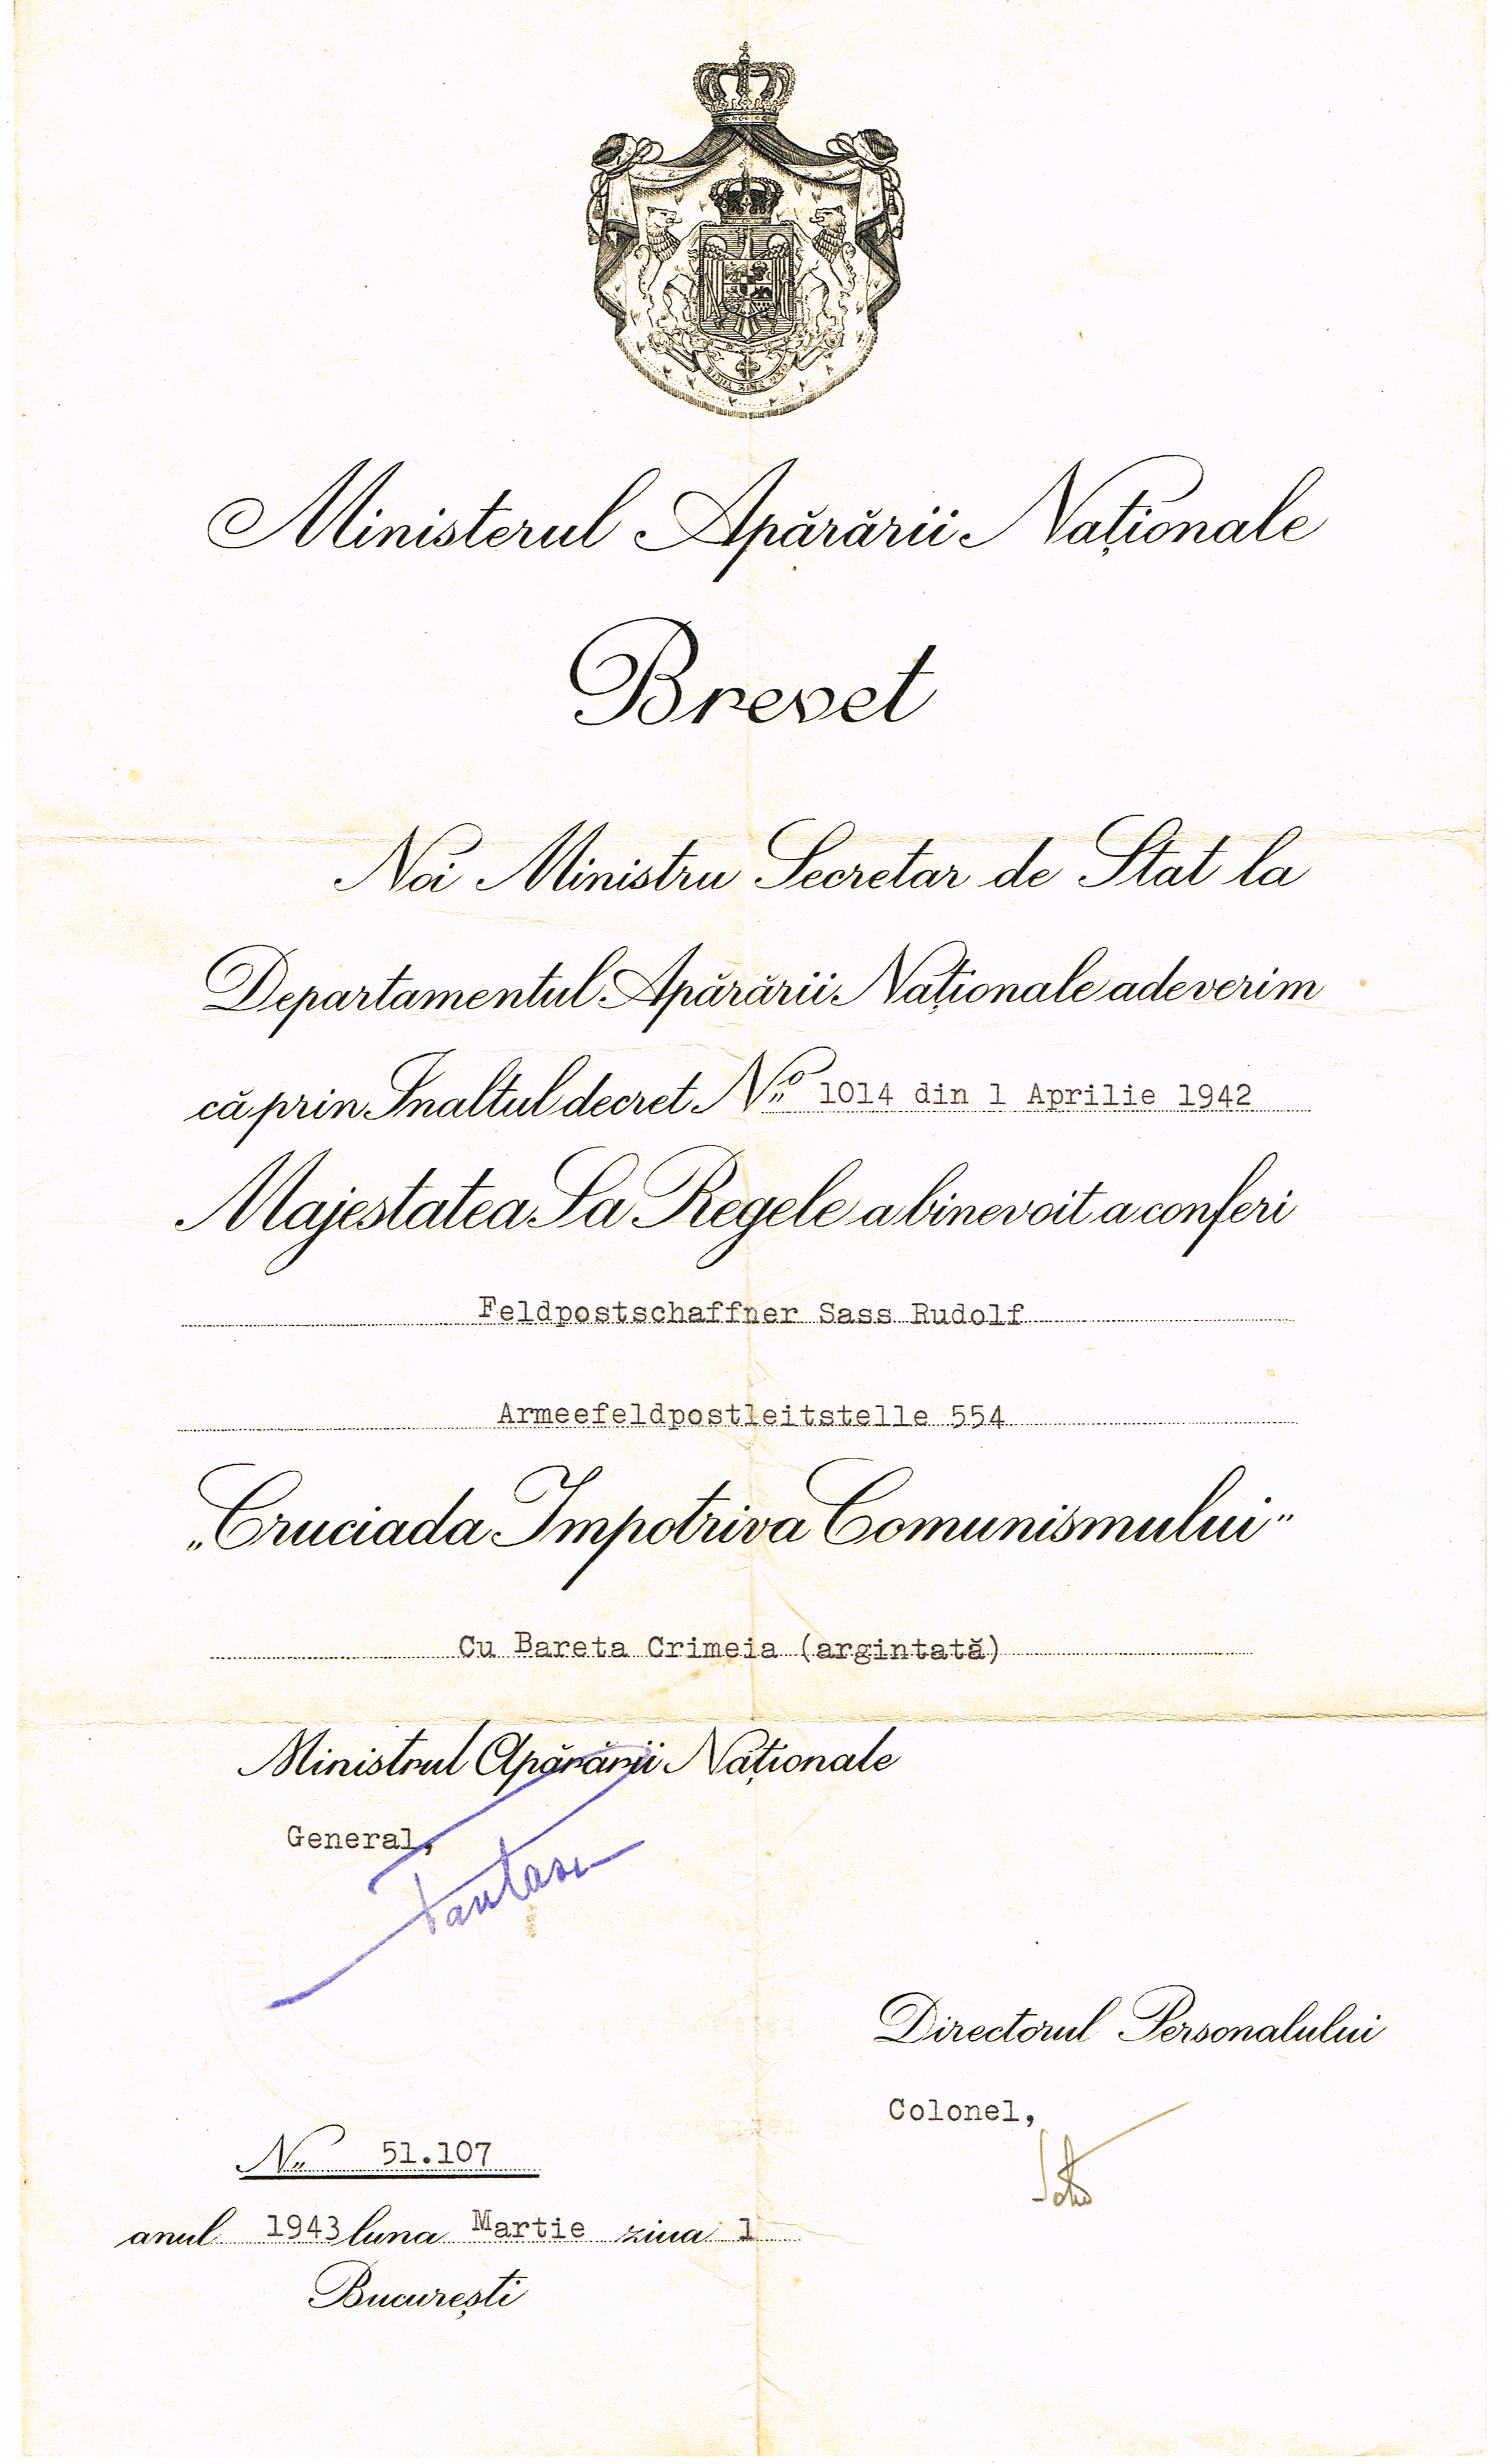 NIHIL SINE DEO
Ministerul Apărării Naționale
Brevet
Noi Ministru Secretar de Stat la
Departamentul Apărării Naționale adeverim
că prin Inaltul decret No 1014 din 1 Aprilie 1942
Majestatea Sa Regele a binevoit a conferi
Feldpostschaffner Sass Rudolf
Armeefeldpostleitstelle 554
„Cruciada Impotriva Comunismului”
Cu Bareta Crimeia (argintată)
Ministrul Apărării Naționale
General,
Directorul Personalului
Colonel,
No 51.107
anul 1943 luna Martie ziua 1
București